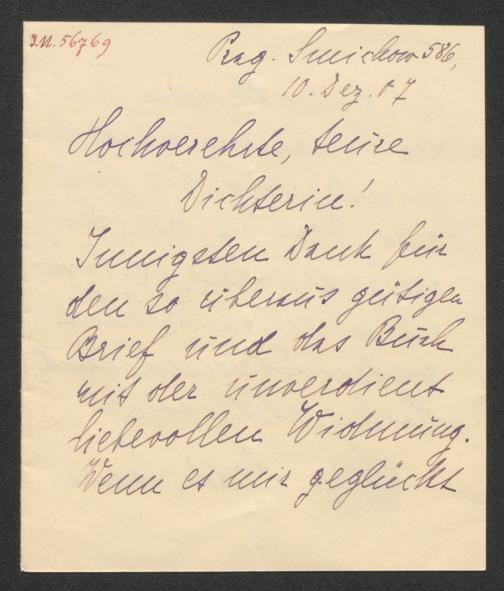 I.N. 56769
Prag. Smichow 586,
10. Dez. 07
Hochverehrte, teure
Dichterin!
Innigsten Dank für
den so überaus gütigen
Brief und das Buch
mit der unverdient
liebevollen Widmung.
Wenn es mir geglückt